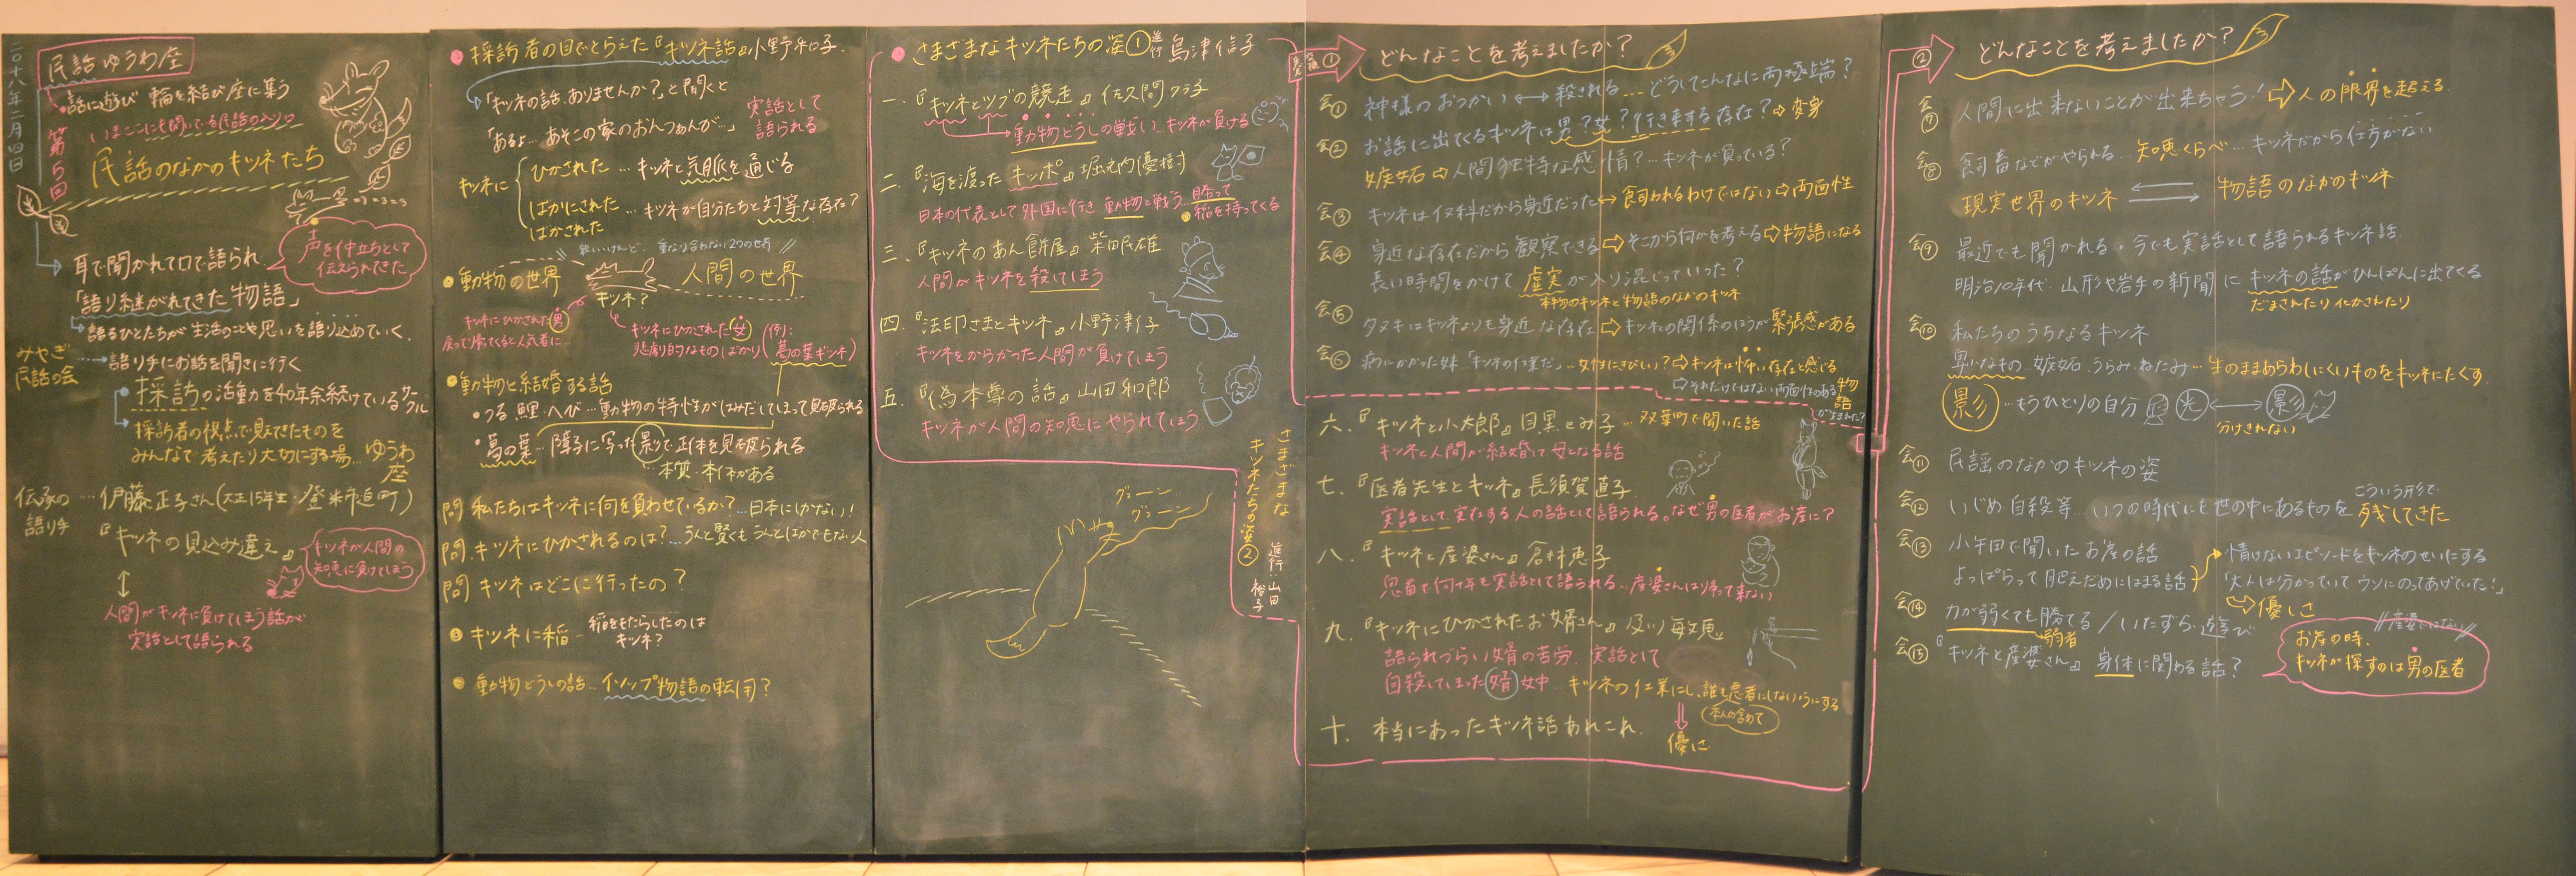 二〇十八年二月四日
民話ゆうわ座
・話に遊び 輪を結び 座に集う
いまここにも開いている民話の入り口
第5回
民話のなかのキツネたち
耳で聞かれて口で語られ
声を仲立ちとして
伝えられてきた
「語り継がれてきた物語」
語るひとたちが生活のことや思いを語り込めていく。
みやぎ
民話の会
語り手にお話を聞きに行く
採訪の活動を40年余続けているサークル
採訪者の視点で見てきたものを
みんなで考えたり大切にする場…ゆうわ座
伝承の
語り手
…伊藤正子さん(大正15年生・登米市迫町)
『キツネの見込み違え』
キツネが人間の
知恵に負けてしまう
人間がキツネに負けてしまう話が
実話として語られる
採訪者の目でとらえた『キツネ話』小野和子
「キツネの話、ありませんか?」と聞くと
「あるよ…あそこの家のおんつぁんが…」
実話として
語られる
キツネに
ひかされた…キツネと気脈を通じる
ばかにされた
ばかされた
…キツネが自分たちと対等な存在?
親しいけれど、重なり合わない2つの世界
動物の世界
人間の世界
キツネ?
キツネにひかされた男
戻って帰ってくると人気者に…
キツネにひかされた女
悲劇的なものばかり
(例:葛の葉ギツネ)
動物と結婚する話
・つる、鯉、へび…動物の特性がはみだしてしまって見破られる
・葛の葉…障子に写った影で正体を見破られる
…本質・本性がある
問 私たちはキツネに何を負わせているか?…日本にしかない!
問 キツネにひかされるのは?…うんと賢くもうんとばかでもない人
問 キツネはどこに行ったの?
キツネに稲…
稲をもたらしたのは
キツネ?
動物どうしの話…イソップ物語の転用?
さまざまなキツネたちの姿① 進行 島津信子
一.『キツネとツブの競走』佐久間クラ子
動物どうしの戦い、キツネが負ける
二.『海を渡ったキッポ』堀之内優樹
日本の代表として外国に行き動物と戦う…勝って
稲を持ってくる
三.『キツネのあん餅屋』柴田民雄
人間がキツネを殺してしまう
四.『法印さまとキツネ』小野津伊子
キツネをからかった人間が負けてしまう
五.『偽本尊の話』山田和郎
キツネが人間の知恵にやられてしまう
グェーン…
グェーン…
さまざまな
キツネたちの姿②
進行:山田裕子
会場①
どんなことを考えましたか?
会① 神様のおつかい↔殺される…どうしてこんなに両極端?
会② お話に出てくるキツネは男?女?行き来する存在?⇨変身
嫉妬⇨人間独特な感情?…キツネが負っている?
会③ キツネはイヌ科だから身近だった↔飼われるわけではない⇨両面性
会④ 身近な存在だから観察できる⇨そこから何かを考える⇨物語になる
長い時間をかけて虚実が入り混じっていった?
本物のキツネと物語のなかのキツネ
会⑤ タヌキはキツネよりも身近な存在⇨キツネの関係のほうが緊張感がある
会⑥ 病にかかった妹「キツネの仕業だ」…女性にきびしい?⇨キツネは怖い存在と感じる
⇨それだけではない両面性のある物語が生まれた?
六.『キツネと小太郎』目黒とみ子…双葉町で聞いた話
キツネと人間が結婚して母となる話
七.『医者先生とキツネ』長須賀直子
実話として、実在する人の話として語られる。なぜ男の医者がお産に?
八.『キツネと産婆さん』倉林恵子
恩返で何十年も実話として語られる…産婆さんは帰って来ない
九.『キツネにひかされたお婿さん』
語られづらい婿の苦労、実話として
自殺してしまった婿、女中…キツネの仕業にし、誰も悪者にしないようにする
本人の含めて
優しさ
十.本当にあったキツネ話あれこれ
②
どんなことを考えましたか?
会⑦ 人間に出来ないことが出来ちゃう!⇨人の限界を超える
会⑧ 飼畜などがやられる…知恵くらべ…キツネだから仕方がない
現実世界のキツネ
物語のなかのキツネ
会⑨ 最近でも聞かれる。今でも実話として語られるキツネ話
明治10年代、山形や岩手の新聞にキツネの話がひんぱんに出てくる
だまされたり化かされたり
会⑩ 私たちのうちなるキツネ
卑しなもの、嫉妬、うらみ、ねたみ…生のままあらわしにくいものをキツネにたくす
影…もうひとりの自分
光↔影
分けきれない
会⑪ 民謡のなかのキツネの姿
会⑫ いじめ、自殺等…いつの時代にも世の中にあるものを
こういう形で
残してきた
会⑬ 小牛田で聞いたお産の話
よっぱらって肥えだめにはまる話
情けないエピソードをキツネのせいにする
「大人は分かっていてウソにのってあげていた!」
優しさ
会⑭ 力が弱くても勝てる/いたずら、遊び
弱者
会⑮ 『キツネと産婆さん』身体に関わる話?
産婆ではない
お産の時、
キツネが探すのは男の医者